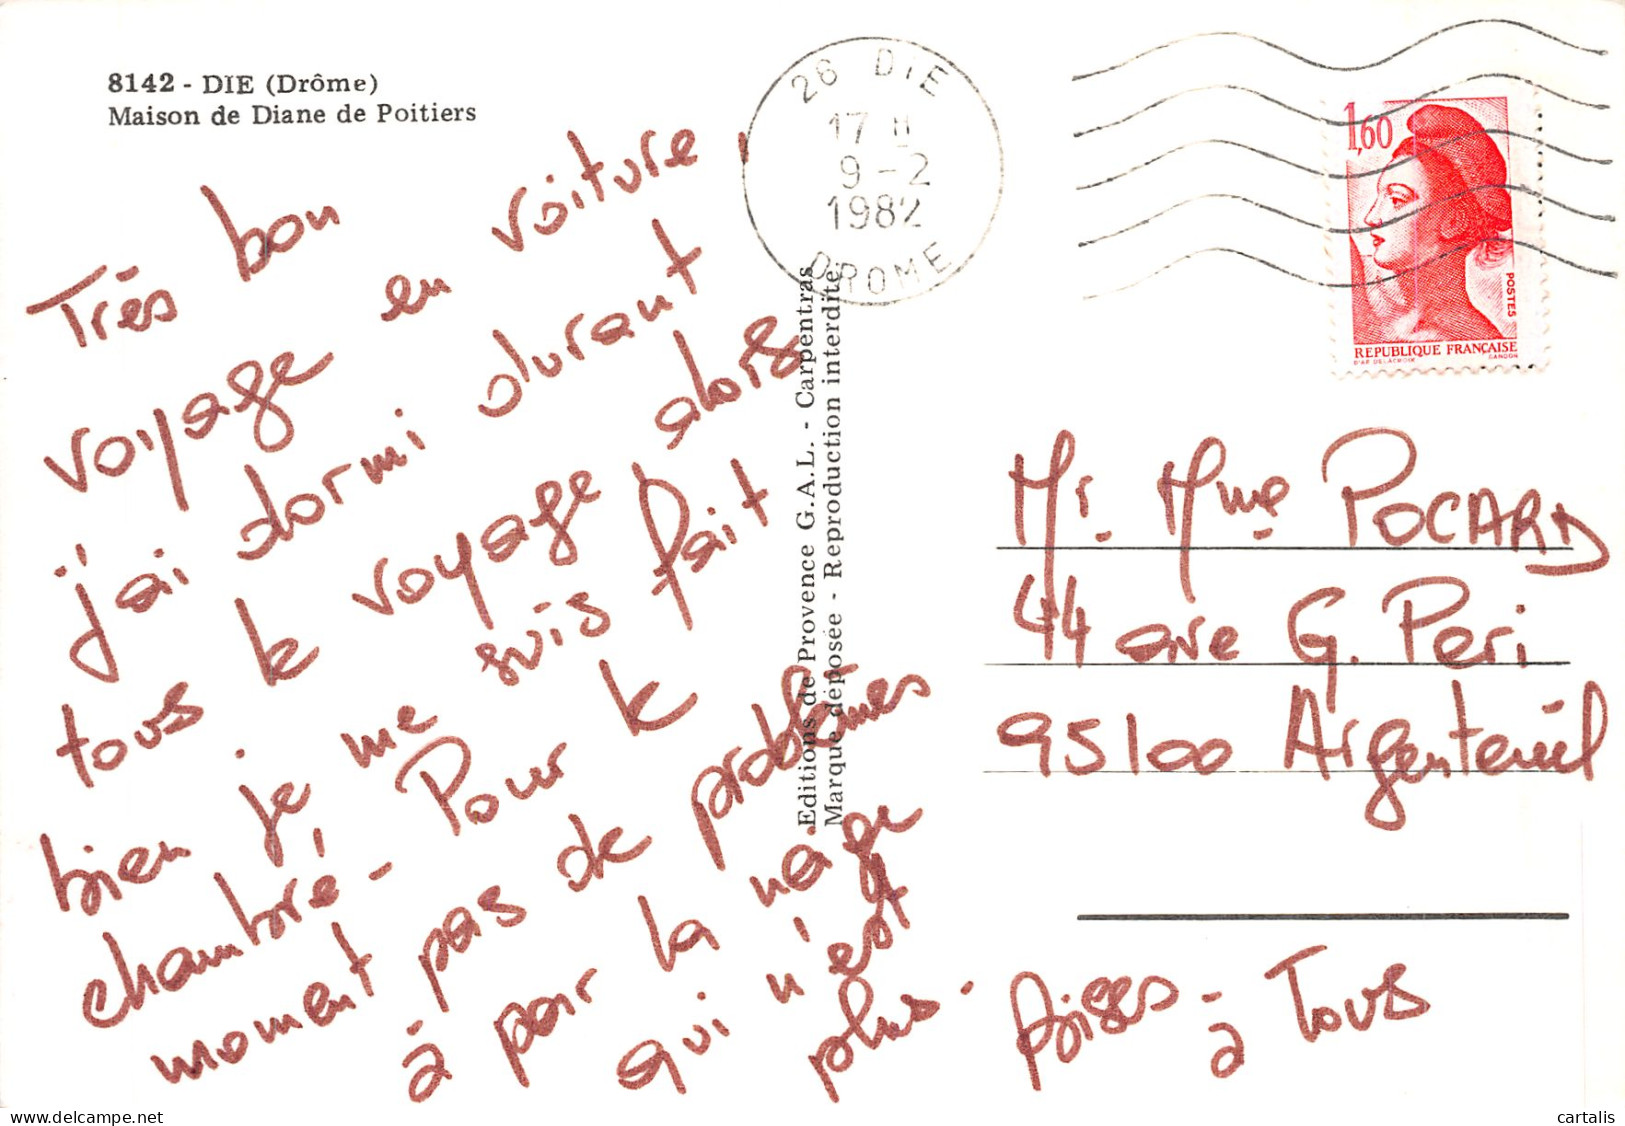 8142 - DIE (Drôme)
Maison de Diane de Poitiers
Très bon
voyage en voiture,
j'ai dormi durant
tous le voyage alors
bien je me suis fait
chambré - Pour le
moment pas de problèmes
à par la neige
qui n'est
plus. Bises - à Tous
Editions de Provence G.A.L. - Carpentras
Marque déposée - Reproduction interdite
26 DIE
17 H
9-2
1982
DROME
1,60
POSTES
REPUBLIQUE FRANÇAISE
D'AP. DELACROIX GANDON
Mr. Mme POCARD
44 ave G. Peri
95100 Argenteuil
cartalis